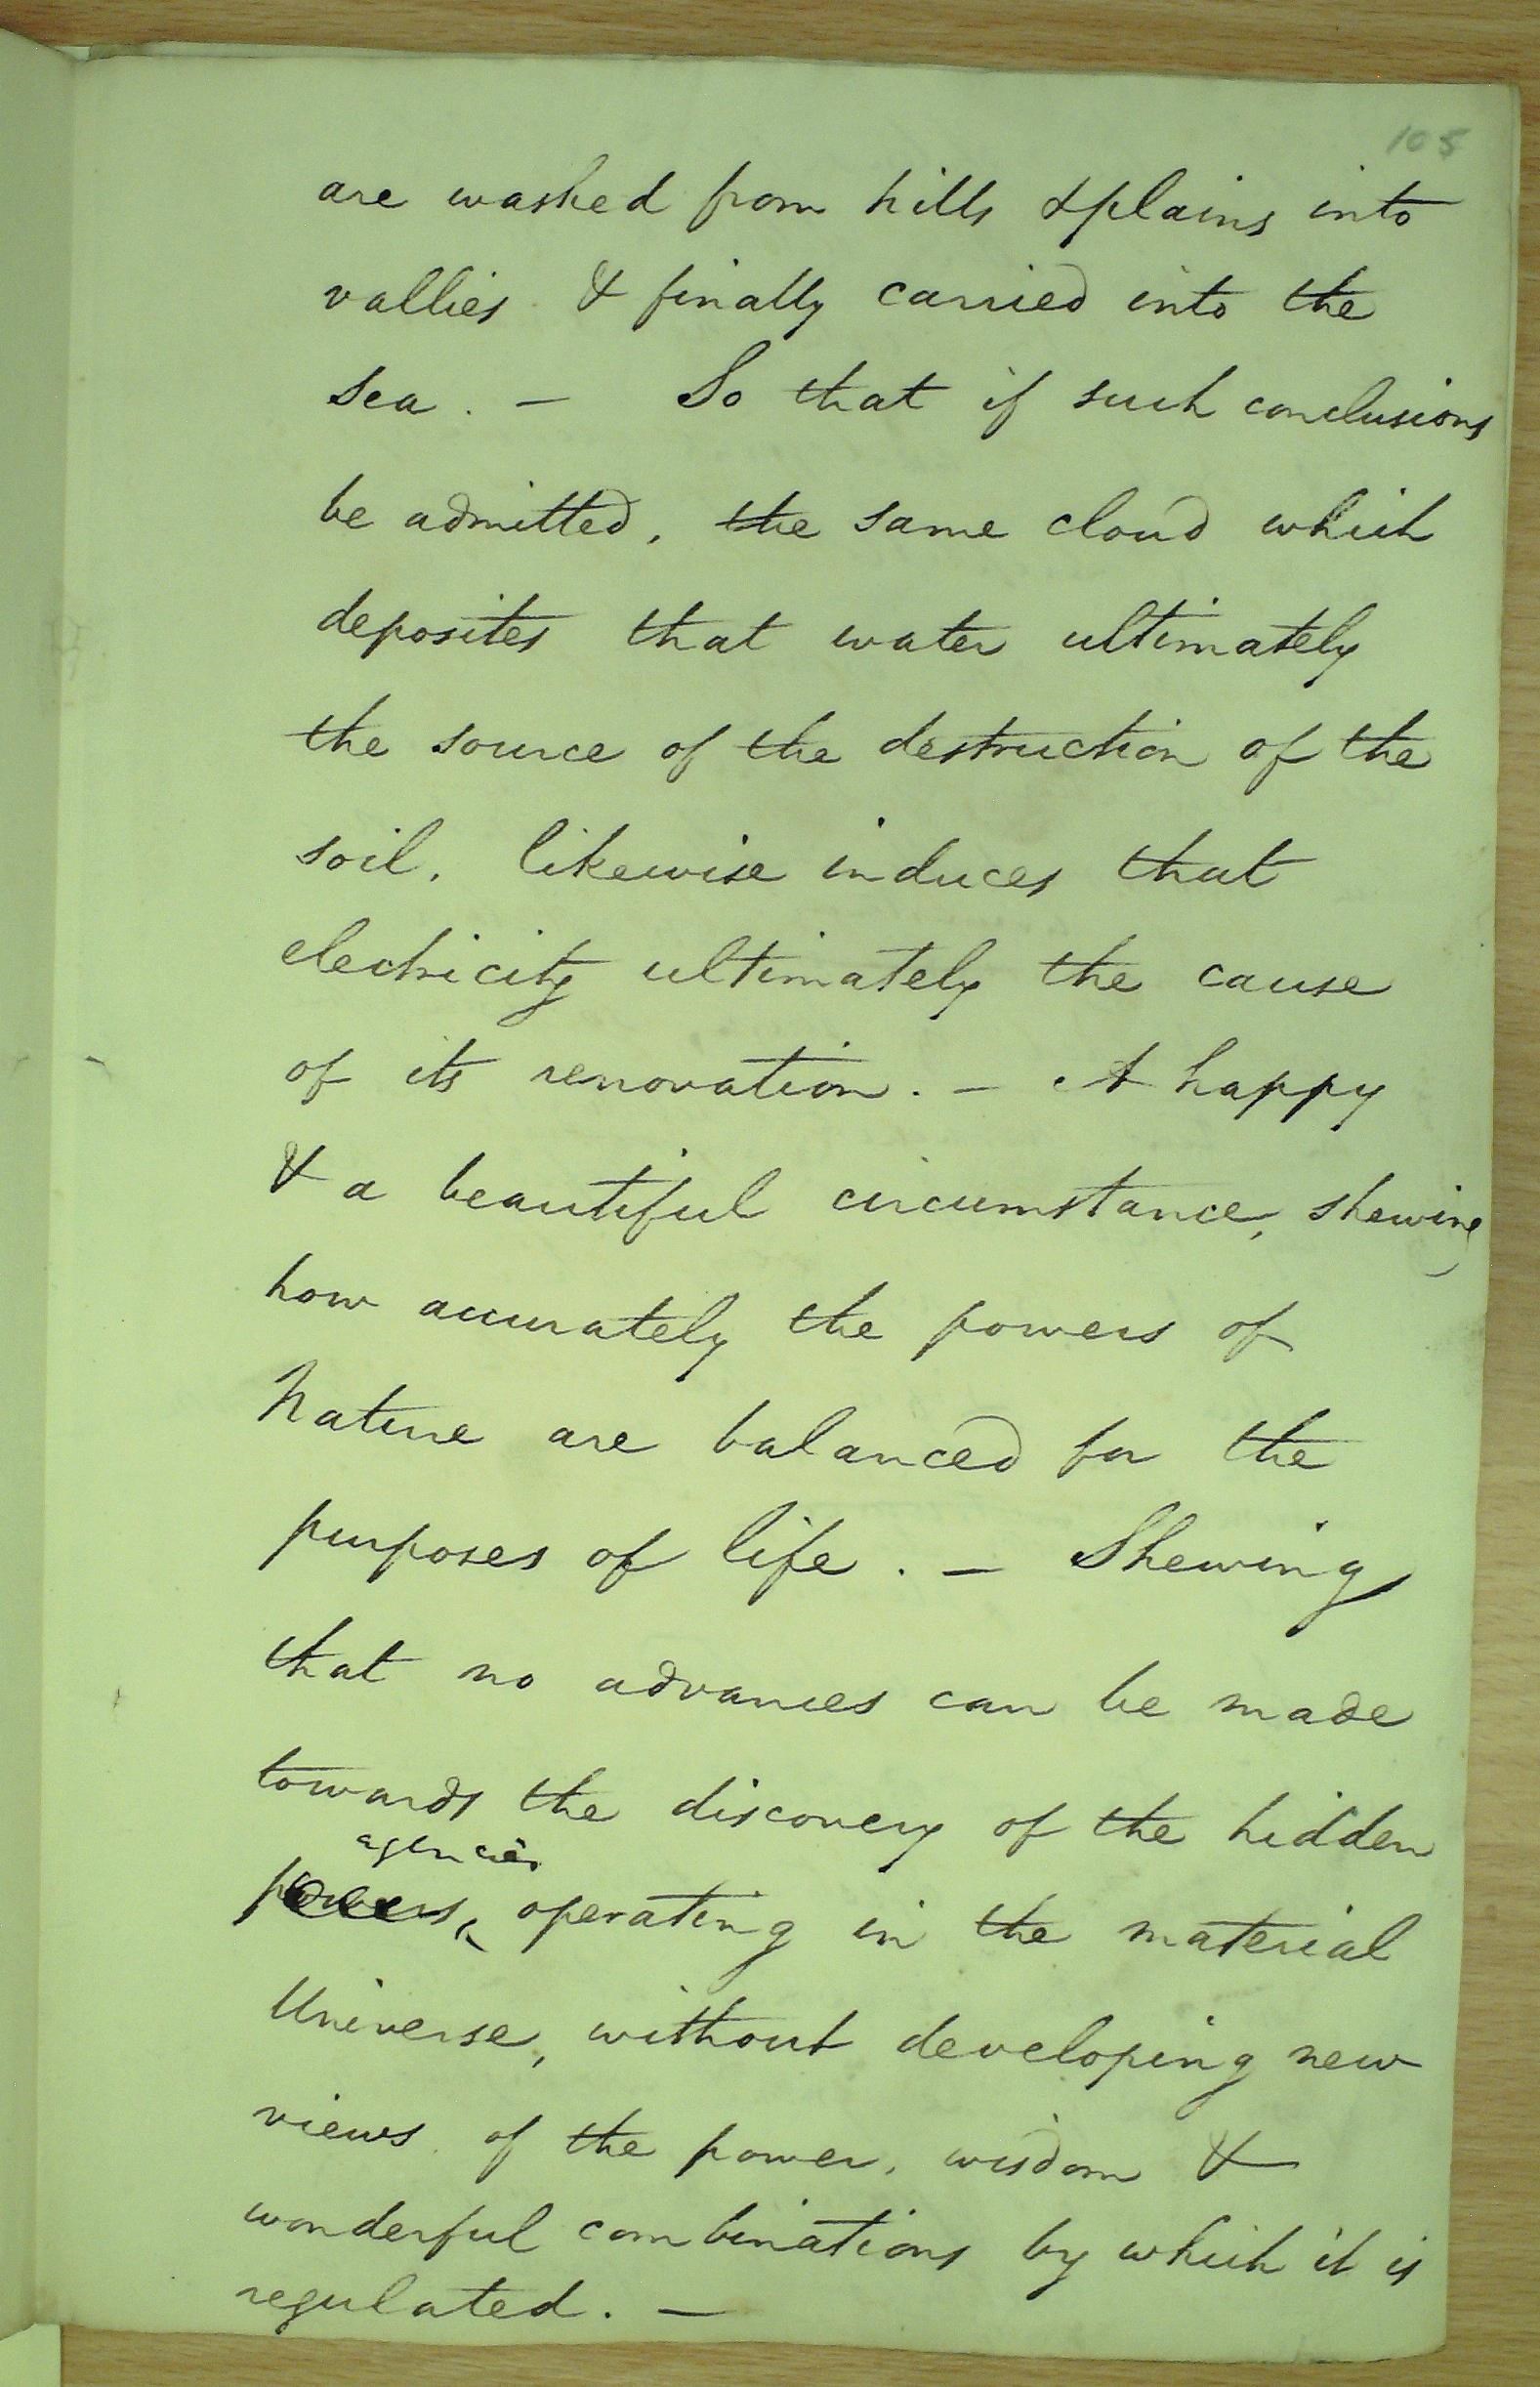 105
are washed from hills & plains into
vallies & finally carried into the
sea. — So that if such conclusions
be admitted, the same cloud which
deposites that water ultimately
the source of the destruction of the
soil, likewise induces that
electricity ultimately the cause
of its renovation. — A happy
& a beautiful circumstance, shewing
how accurately the powers of
Nature are balanced for the
purposes of life. — Shewing
that no advances can be made
towards the discovery of the hidden
agencies
powers, operating in the material
Universe, without developing new
views of the power, wisdom &
wonderful combinations by which it is
regulated. —